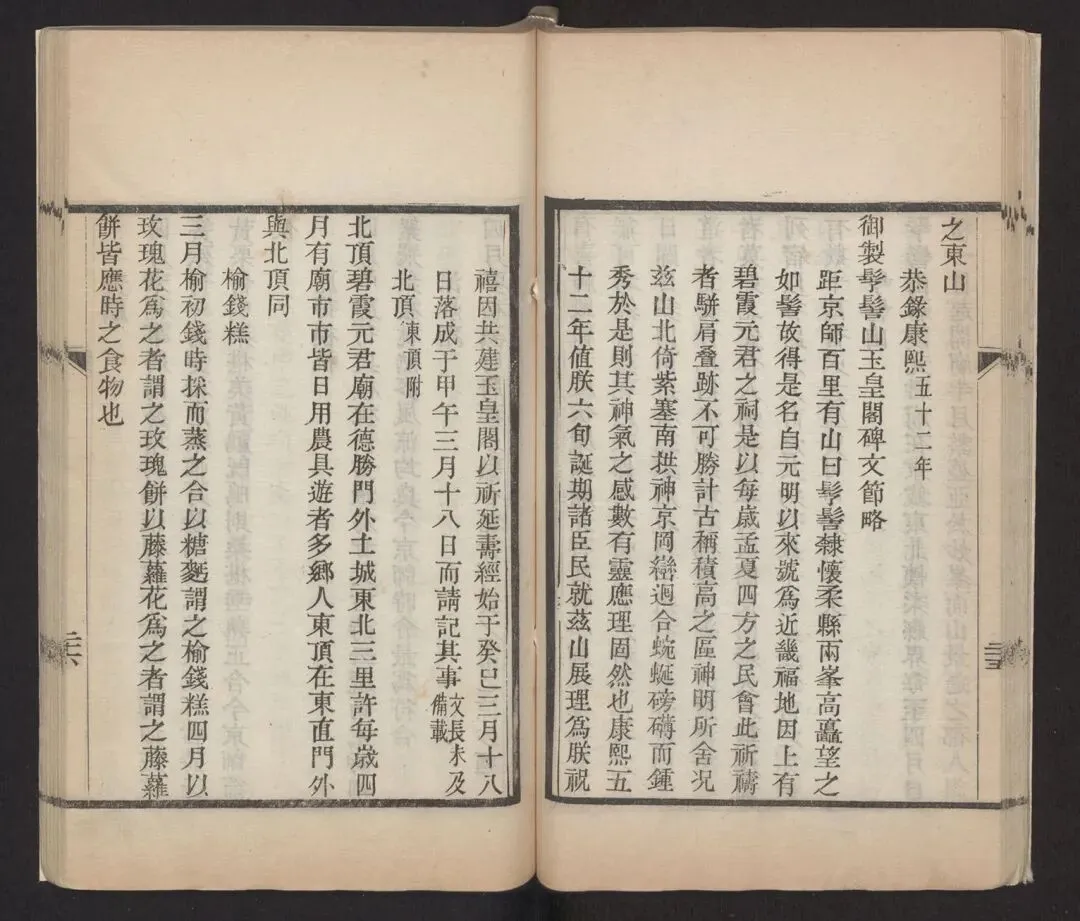 之東山
恭錄康熙五十二年
御製髻髻山玉皇閣碑文節略
距京師百里有山曰髻髻隸懷柔縣兩峯高矗望之
如髻故得是名自元明以來號爲近畿福地因上有
碧霞元君之祠是以每歲孟夏四方之民會此祈禱
者駢肩叠跡不可勝計古稱積高之區神明所舍况
茲山北倚紫塞南拱神京岡巒迴合蜿蜒磅礴而鍾
秀於是則其神氣之感數有靈應理固然也康熙五
十二年值朕六旬誕期諸臣民就茲山展理爲朕祝
禧因共建玉皇閣以祈延壽經始于癸巳三月十八
日落成于甲午三月十八日而請記其事文長未及備載
北頂東頂附
北頂碧霞元君廟在德勝門外土城東北三里許每歲四
月有廟市市皆日用農具遊者多鄉人東頂在東直門外
與北頂同
榆錢糕
三月榆初錢時採而蒸之合以糖麪謂之榆錢糕四月以
玫瑰花爲之者謂之玫瑰餅以藤蘿花爲之者謂之藤蘿
餅皆應時之食物也
二十五
二十六